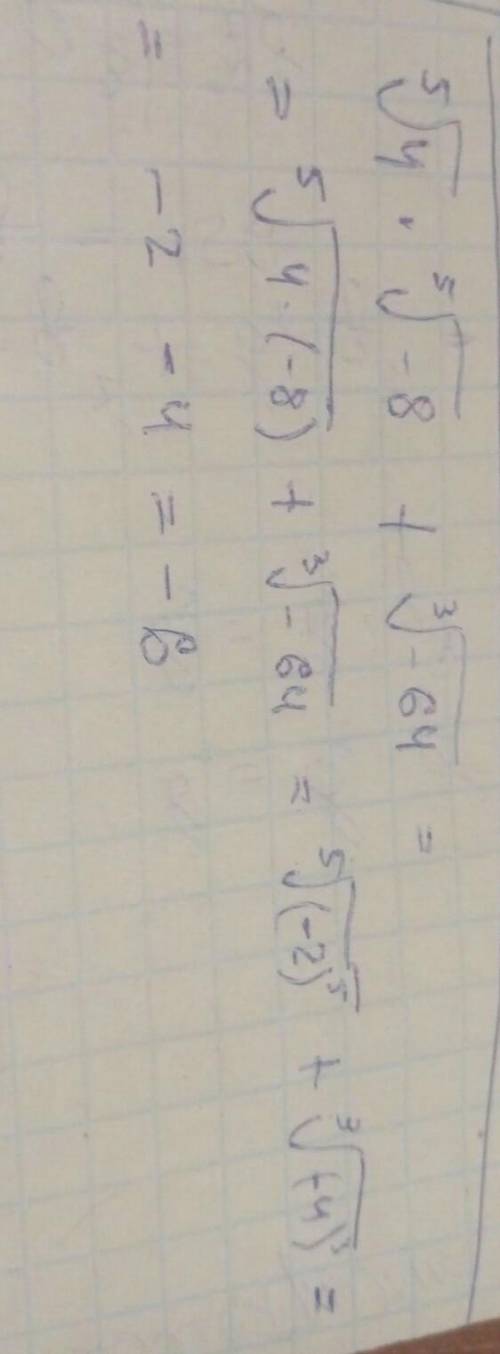 ⁵√4 · ⁵√-8 + ³√-64 =
= ⁵√4·(-8) + ³√-64 = ⁵√(-2)⁵ + ³√(-4)³ =
= -2 -4 = -6